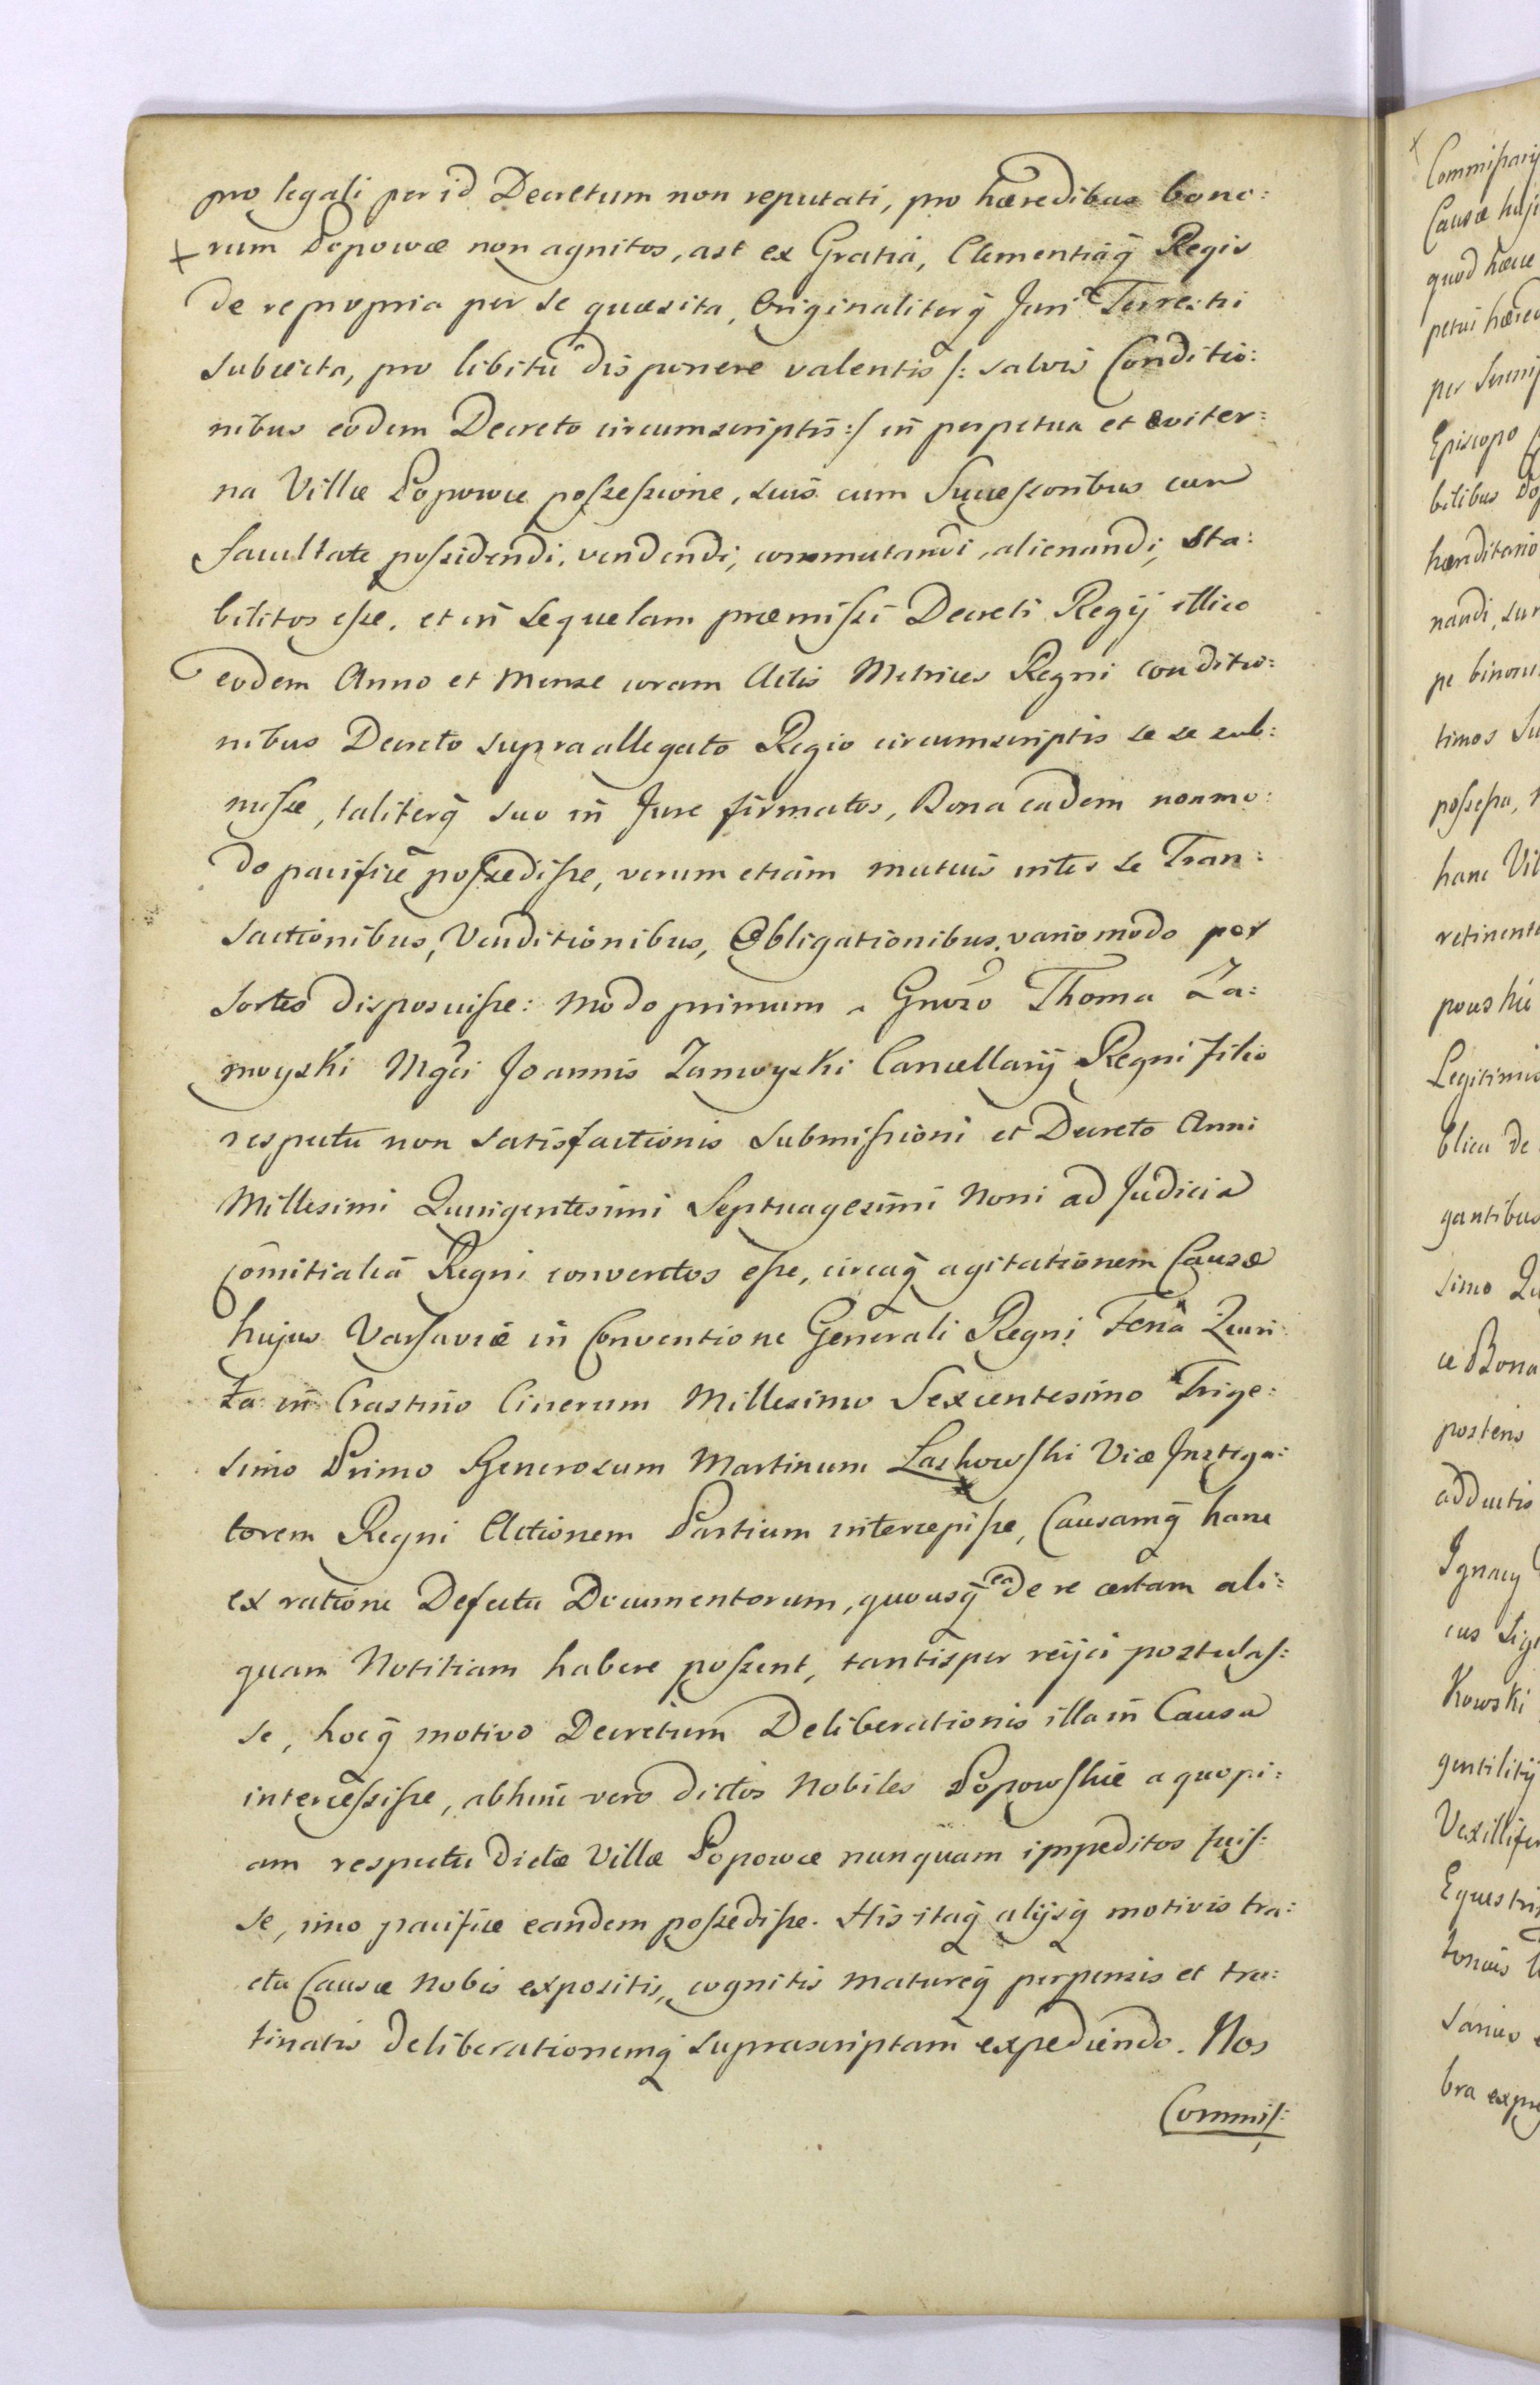 pro legali per id Decretum non reputati, pro hæredibus bono:
+ rum Popowæ non agnitos, ast ex Gratiâ, Clementiâq̃ Regis
de re propria per se quæsita, Originaliterq̃ Juri Terrestri
subiecta, pro libitu disponere valentis /: salvis Conditio:
nibus eodem Decreto circumscriptis :/ in perpetua et æviter:
na Villæ Popowæ possessione, suis cum Successoribus cum
facultate possidendi, vendendi, commutandi, alienandi, sta:
bilitos esse, et in sequelam præmissi Decreti Regij illico
eodem Anno et Mense coram Actis Metrices Regni conditio:
nibus Decreto supra allegato Regio circumscriptis se se sub:
misse, taliterq̃ suo in Jure firmatos, Bona eadem non mo:
do pacificè possedisse, verum etiam mutuis inter se Tran:
sactionibus, Venditionibus, Obligationibus, vario modo per
sortes disposuisse: modo primum a Gnoso Thoma Za:
moyski Mgci Joannis Zamoyski Cancellarij Regni filio
respectu non satisfactionis submissioni et Decreto Anni
Millesimi Quingentesimi Septuagesimi Noni ad Judicia
Comitialia Regni conventos esse, circaq̃ agitationem Causæ
hujus Varsaviæ in Conventione Generali Regni Feria Quin
ta in Crastino Cinerum Millesimo Sexcentesimo Trige:
simo Primo Generosum Martinum Laskowski Vice Instiga:
torem Regni Actionem Partium intercepisse, Causamq̃ hanc
ex ratione Defectu Documentorum, quousq̃ ea de re certam ali:
quam Notitiam habere possent, tantisper reijci postulas:
se, hocq̃ motivo Decretum Deliberationis illa in Causa
intercessisse, abhinc vero dictos Nobiles Popowskie a quopi:
am respectu dictæ Villæ Popowæ nunquam impeditos fuis:
se, imo pacifice eandem possedisse. His itaq̃ alijsq̃ motivis tra:
ctu Causæ Nobis expositis, cognitis matureq̃ perpensis et tru:
tinatis deliberationemq̃ suprascriptam expediendo. Nos
Commis:
+
Commissarij
Causæ huj
quod hæce
petui hæred
per Sereniss
Episcopo
bilibus Po
hæreditario
nandi, sur
pe binoru
timos Su
possessa,
hanc Vil
retinent
powskie
Legitimis
blica de
gantibus
simo Qu
æ Bona
posteris
adductis
Ignacy
cus Sigi
Kowski
gentilitij
Vexillifer
Equestri
sarios
bra expre